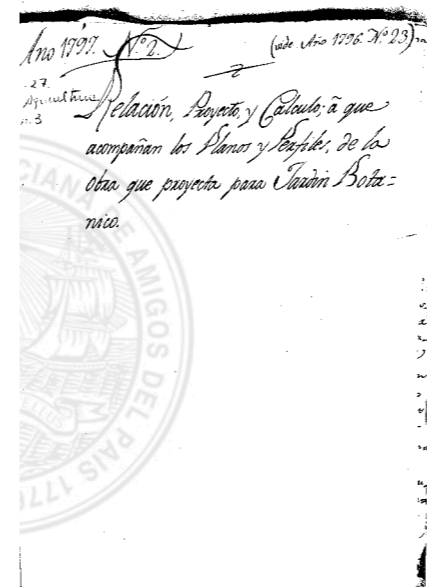 Año 1797. N.º 2. (vide Año 1796. N.º 23)
27.
Agricultura
n.3
Relación, Proyecto, y Calculo, â que
acompañan los Planos y Perfiles, de la
obra que proyecta para Jardin Bota=
nico.
CIANA DE AMIGOS DEL PAIS 177